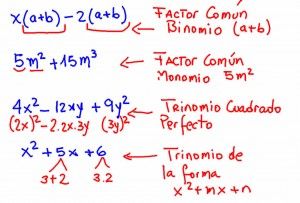 x(a+b) - 2(a+b) ← FACTOR COMÚN
BINOMIO (a+b)
5m² + 15m³ ← FACTOR COMÚN
MONOMIO 5m²
4x² - 12xy + 9y² ← TRINOMIO CUADRADO
(2x)² - 2.2x.3y (3y)² PERFECTO
x² + 5x + 6 ← TRINOMIO DE
3+2 3.2 la forma
x²+mx+n